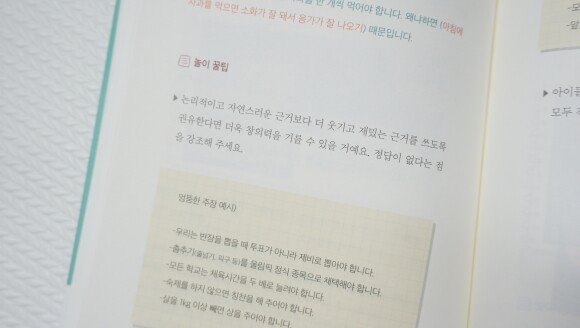 개씩 먹어야 합니다. 왜냐하면 (아침에
사과를 먹으면 소화가 잘 돼서 응가가 잘 나오기) 때문입니다.
놀이 꿀팁
▶ 논리적이고 자연스러운 근거보다 더 웃기고 재밌는 근거를 쓰도록
권유한다면 더욱 창의력을 기를 수 있을 거예요. 정답이 없다는 점
을 강조해 주세요.
엉뚱한 주장 예시)
-우리는 반장을 뽑을 때 투표가 아니라 제비로 뽑아야 합니다.
-춤추기(줄넘기, 피구 등)를 올림픽 정식 종목으로 채택해야 합니다.
-모든 학교는 체육시간을 두 배로 늘려야 합니다.
-숙제를 하지 않으면 칭찬을 해 주어야 합니다.
-살을 1kg 이상 빼면 상을 주어야 합니다.
▶ 아이들
모두